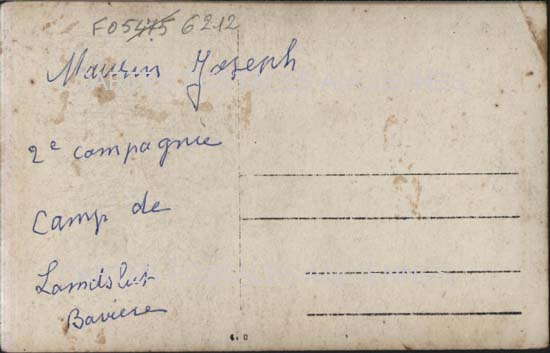 F05475 6212
Maurin Joseph
2e compagnie
Camp de
Landshut
Baviere